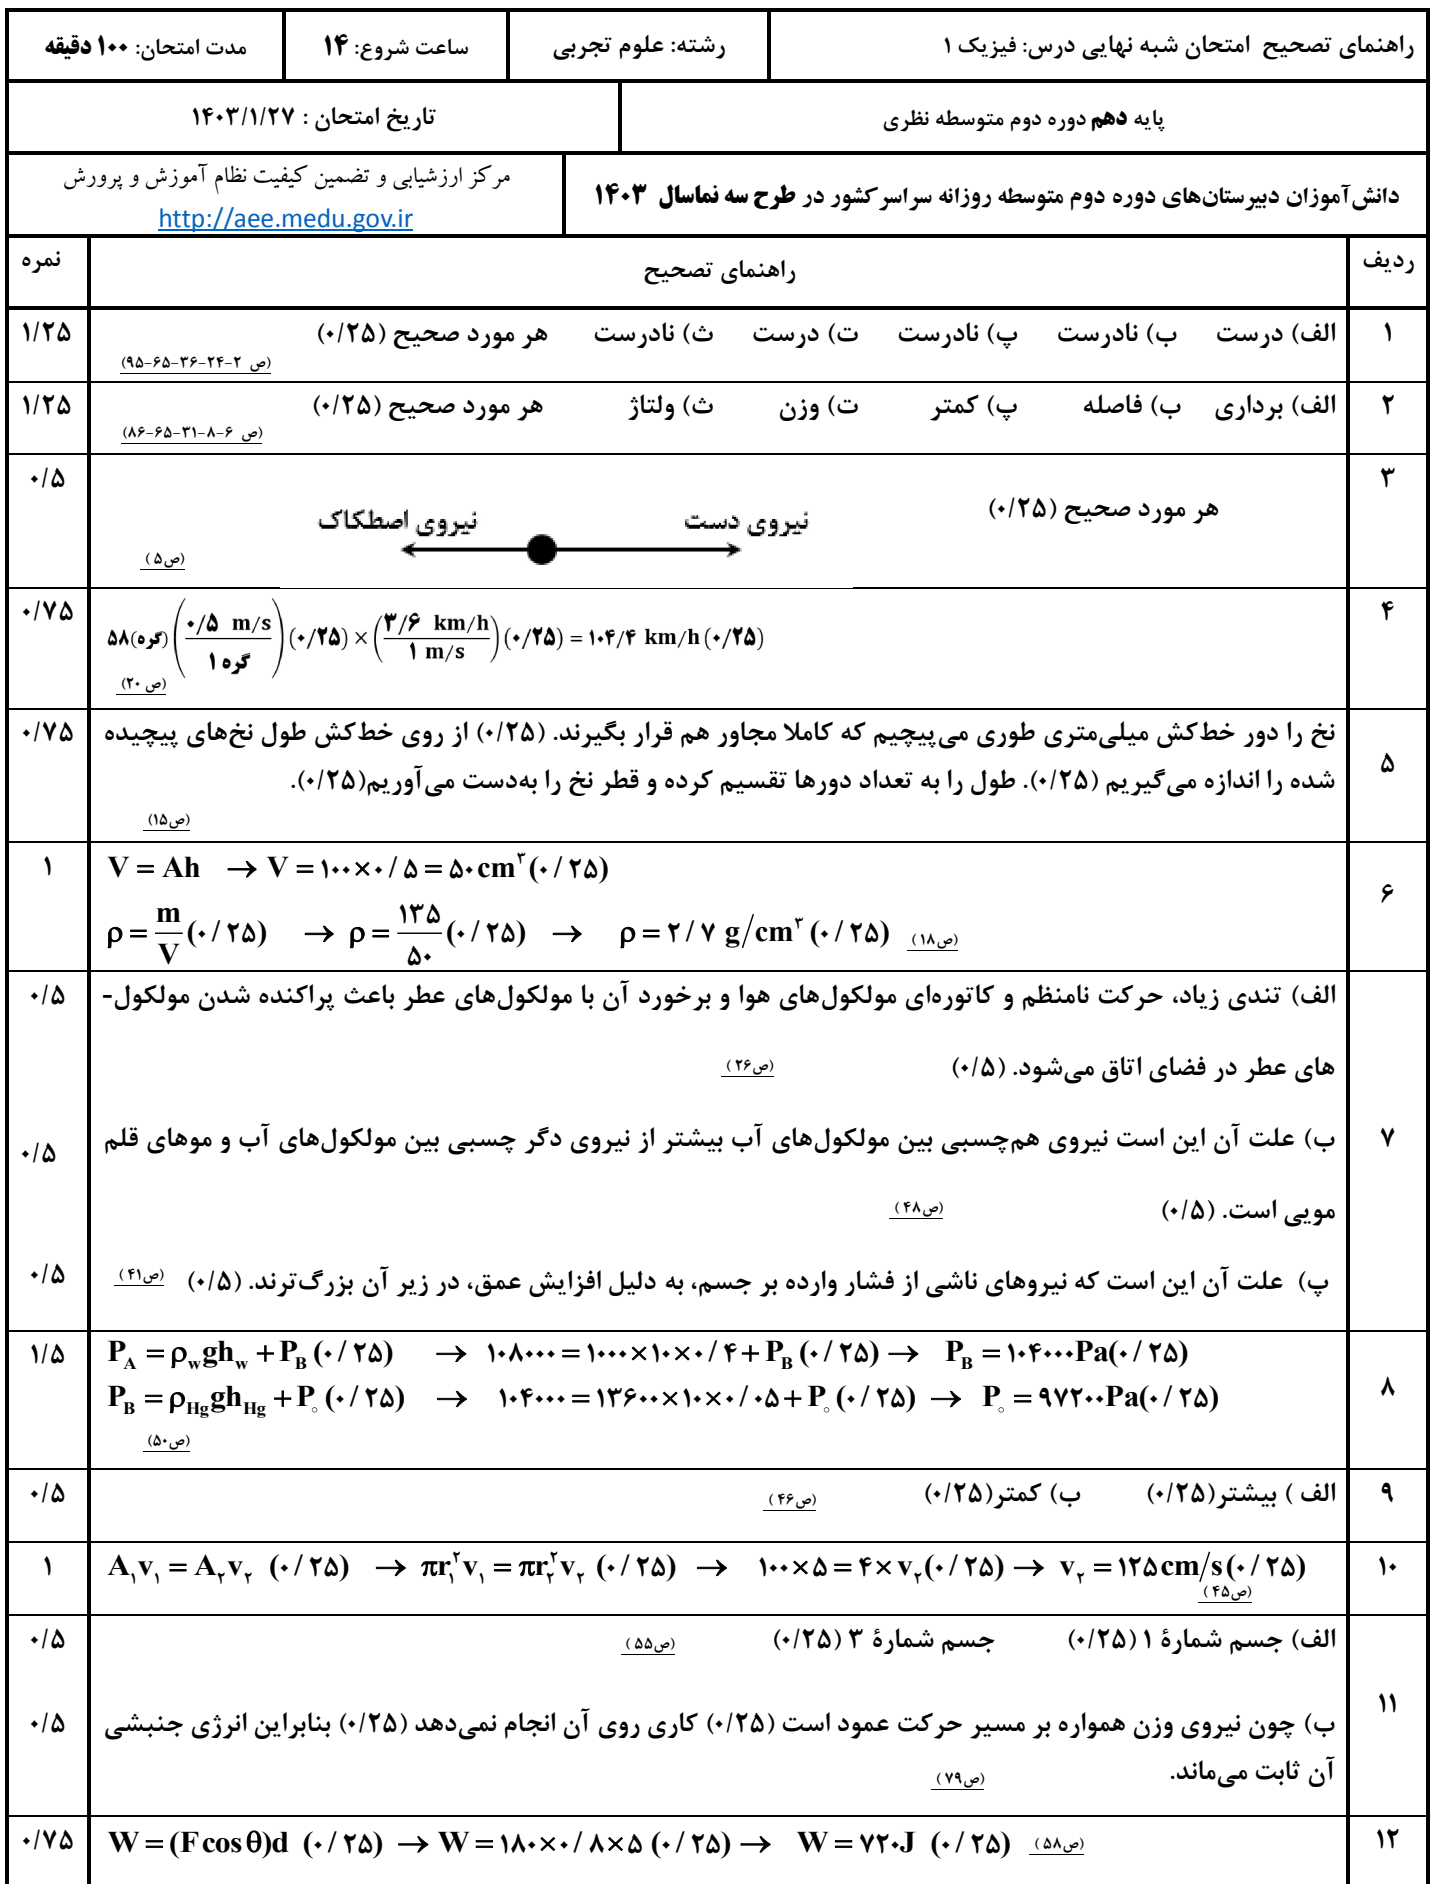 راهنمای تصحیح امتحان شبه نهایی درس: فیزیک ۱
رشته: علوم تجربی
ساعت شروع: ۱۴
مدت امتحان: ۱۰۰ دقیقه
پایه دهم دوره دوم متوسطه نظری
تاریخ امتحان : ۱۴۰۳/۱/۲۷
دانش‌آموزان دبیرستان‌های دوره دوم متوسطه روزانه سراسر کشور در طرح سه نماسال ۱۴۰۳
مرکز ارزشیابی و تضمین کیفیت نظام آموزش و پرورش
http://aee.medu.gov.ir
ردیف راهنمای تصحیح نمره
۱ الف) درست ب) نادرست پ) نادرست ت) درست ث) نادرست هر مورد صحیح (۰/۲۵) ۱/۲۵
(ص ۲-۲۴-۳۶-۶۵-۹۵)
۲ الف) برداری ب) فاصله پ) کمتر ت) وزن ث) ولتاژ هر مورد صحیح (۰/۲۵) ۱/۲۵
(ص ۶-۸-۳۱-۶۵-۸۶)
۳ هر مورد صحیح (۰/۲۵) ۰/۵
نیروی دست نیروی اصطکاک
(ص۵)
۴ ۰/۷۵
۵۸(گره)(۰/۵ m/s / ۱ گره)(۰/۲۵)×(۳/۶ km/h / ۱ m/s)(۰/۲۵) = ۱۰۴/۴ km/h (۰/۲۵)
(ص ۲۰)
۵ نخ را دور خط‌کش میلی‌متری طوری می‌پیچیم که کاملا مجاور هم قرار بگیرند. (۰/۲۵) از روی خط‌کش طول نخ‌های پیچیده ۰/۷۵
شده را اندازه می‌گیریم (۰/۲۵). طول را به تعداد دورها تقسیم کرده و قطر نخ را به‌دست می‌آوریم(۰/۲۵).
(ص۱۵)
۶ ۱
V = Ah → V = ۱۰۰×۰/۵ = ۵۰ cm³ (۰/۲۵)
ρ = m/V (۰/۲۵) → ρ = ۱۳۵/۵۰ (۰/۲۵) → ρ = ۲/۷ g/cm³ (۰/۲۵) (ص۱۸)
۷ الف) تندی زیاد، حرکت نامنظم و کاتوره‌ای مولکول‌های هوا و برخورد آن با مولکول‌های عطر باعث پراکنده شدن مولکول- ۰/۵
های عطر در فضای اتاق می‌شود. (۰/۵) (ص۲۶)
ب) علت آن این است نیروی هم‌چسبی بین مولکول‌های آب بیشتر از نیروی دگر چسبی بین مولکول‌های آب و موهای قلم ۰/۵
مویی است. (۰/۵) (ص۴۸)
پ) علت آن این است که نیروهای ناشی از فشار وارده بر جسم، به دلیل افزایش عمق، در زیر آن بزرگ‌ترند. (۰/۵) (ص۴۱) ۰/۵
۸ ۱/۵
P_A = ρ_w gh_w + P_B (۰/۲۵) → ۱۰۸۰۰۰ = ۱۰۰۰×۱۰×۰/۴ + P_B (۰/۲۵) → P_B = ۱۰۴۰۰۰Pa(۰/۲۵)
P_B = ρ_Hg gh_Hg + P_۰ (۰/۲۵) → ۱۰۴۰۰۰ = ۱۳۶۰۰×۱۰×۰/۰۵ + P_۰ (۰/۲۵) → P_۰ = ۹۷۲۰۰Pa(۰/۲۵)
(ص۵۰)
۹ الف ) بیشتر(۰/۲۵) ب) کمتر(۰/۲۵) (ص۴۶) ۰/۵
۱۰ ۱
A₁v₁ = A₂v₂ (۰/۲۵) → πr₁²v₁ = πr₂²v₂ (۰/۲۵) → ۱۰۰×۵ = ۴×v₂(۰/۲۵) → v₂ = ۱۲۵cm/s(۰/۲۵)
(ص۴۵)
۱۱ الف) جسم شمارۀ ۱ (۰/۲۵) جسم شمارۀ ۳ (۰/۲۵) (ص۵۵) ۰/۵
ب) چون نیروی وزن همواره بر مسیر حرکت عمود است (۰/۲۵) کاری روی آن انجام نمی‌دهد (۰/۲۵) بنابراین انرژی جنبشی ۰/۵
آن ثابت می‌ماند. (ص۷۹)
۱۲ ۰/۷۵
W = (F cos θ)d (۰/۲۵) → W = ۱۸۰×۰/۸×۵ (۰/۲۵) → W = ۷۲۰J (۰/۲۵) (ص۵۸)